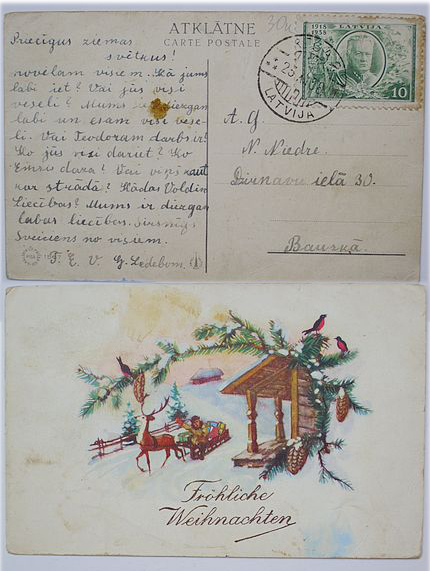 30
ATKLĀTNE
CARTE POSTALE
1918
1938
LATVIJA
10
LATVIJA
Priecīgus ziemas
svētkus!
novēlam visiem. Kā jums
labi iet? Vai jūs visi
veseli? Mums iet diezgan
labi un esam visi vese-
li. Vai Teodoram darbs ir?
Ko jūs visi dariet? Ko
dara? Vai viņš kaut
kur strādā? Kādas Voldim
liecības? Mums ir diezgan
labas liecības. Sirsnīgs
Sveiciens no visiem.
F. E. V. G. Ledebom.
A. G.
N. Niedre.
Dzirnavu ielā 30.
Bauskā.
Fröhliche
Weihnachten